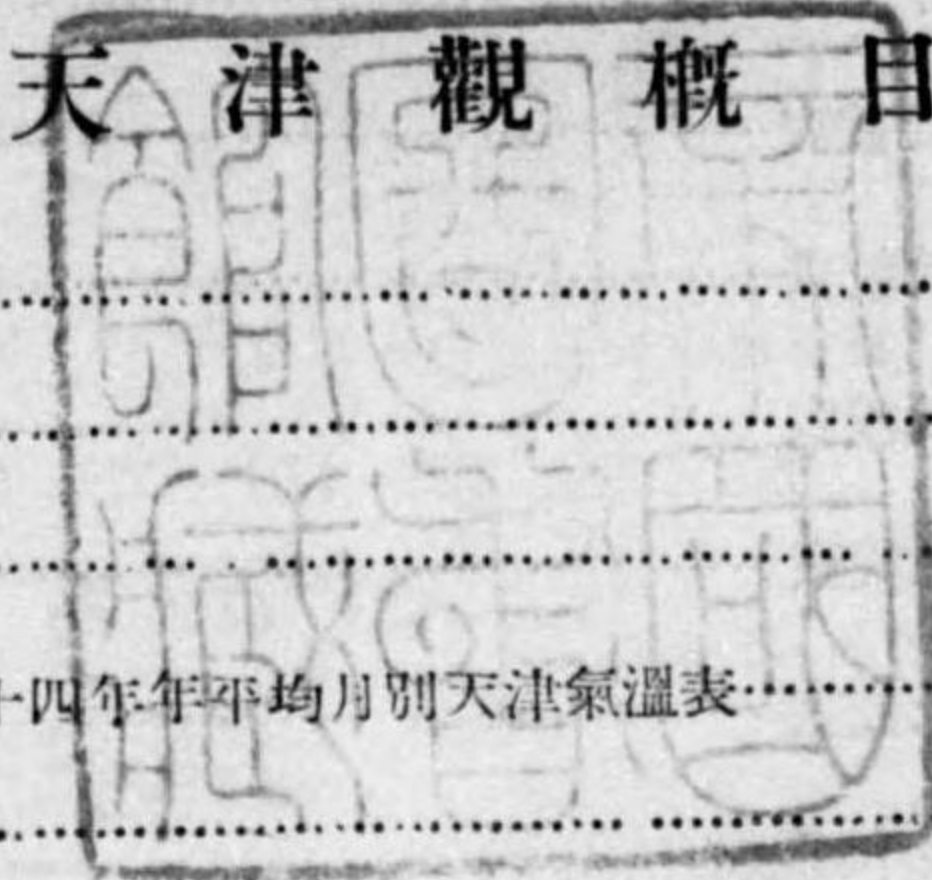 天津觀概目
十四年年平均月別天津氣溫表